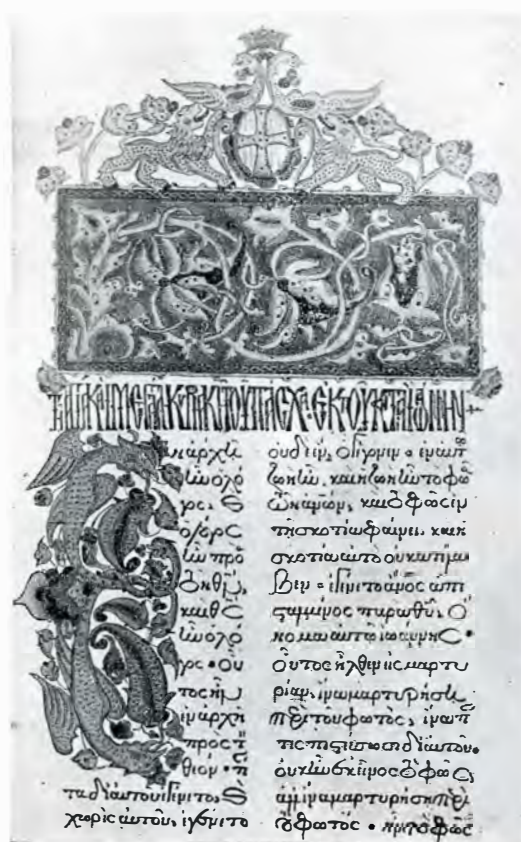 τῇ ἁγίᾳ καὶ μεγάλῃ κυριακῇ τοῦ πάσχα· ἐκ τοῦ κατὰ ἰωάννην +
Ἐν ἀρχῇ
ἦν ὁ λό
γος, καὶ
ὁ λόγος
ἦν πρὸ
τὸν θν,
καὶ θς
ἦν ὁ λό
γος· οὗ
τος ἦν
ἐν ἀρχῇ
πρὸς τ
θεόν· π
τα δι αὐτοῦ ἐγένετο, καὶ
χωρὶς αὐτοῦ, ἐγένετο
οὐδὲ ἕν, ὃ γέγονεν· ἐν αὐτῷ
ζωὴ ἦν, καὶ ἡ ζωὴ ἦν τὸ φῶ
τῶν ἀνων, καὶ τὸ φῶς ἐν
τῇ σκοτίᾳ φαίνει. καὶ ἡ
σκοτία αὐτὸ οὐ κατέλα
βεν· ἐγένετο ἄνος ἀπε
σταλμένος παρὰ θυ, ὄ
νομα αὐτῷ ἰωάννης·
οὗτος ἦλθεν εἰς μαρτυ
ρίαν, ἵνα μαρτυρήσῃ
περὶ τοῦ φωτός, ἵνα π
τες πιστεύσωσι δι αὐτοῦ.
οὐκ ἦν ἐκεῖνος τὸ φῶς,
ἀλλ ἵνα μαρτυρήσῃ περὶ
τοῦ φωτός· ἦν τὸ φῶς